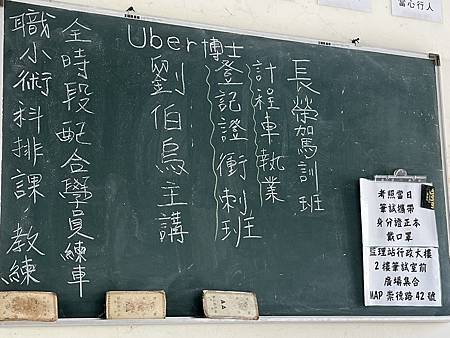 當心行人
長榮駕訓班
計程車執業
登記證衝刺班
Uber博士
劉伯烏主講
全時段配合學員練車
職小術科排課 教練
考照當日
筆試攜帶
身分證正本
戴口罩
監理站行政大樓
2樓筆試室前
廣場集合
MAP 崇德路42號